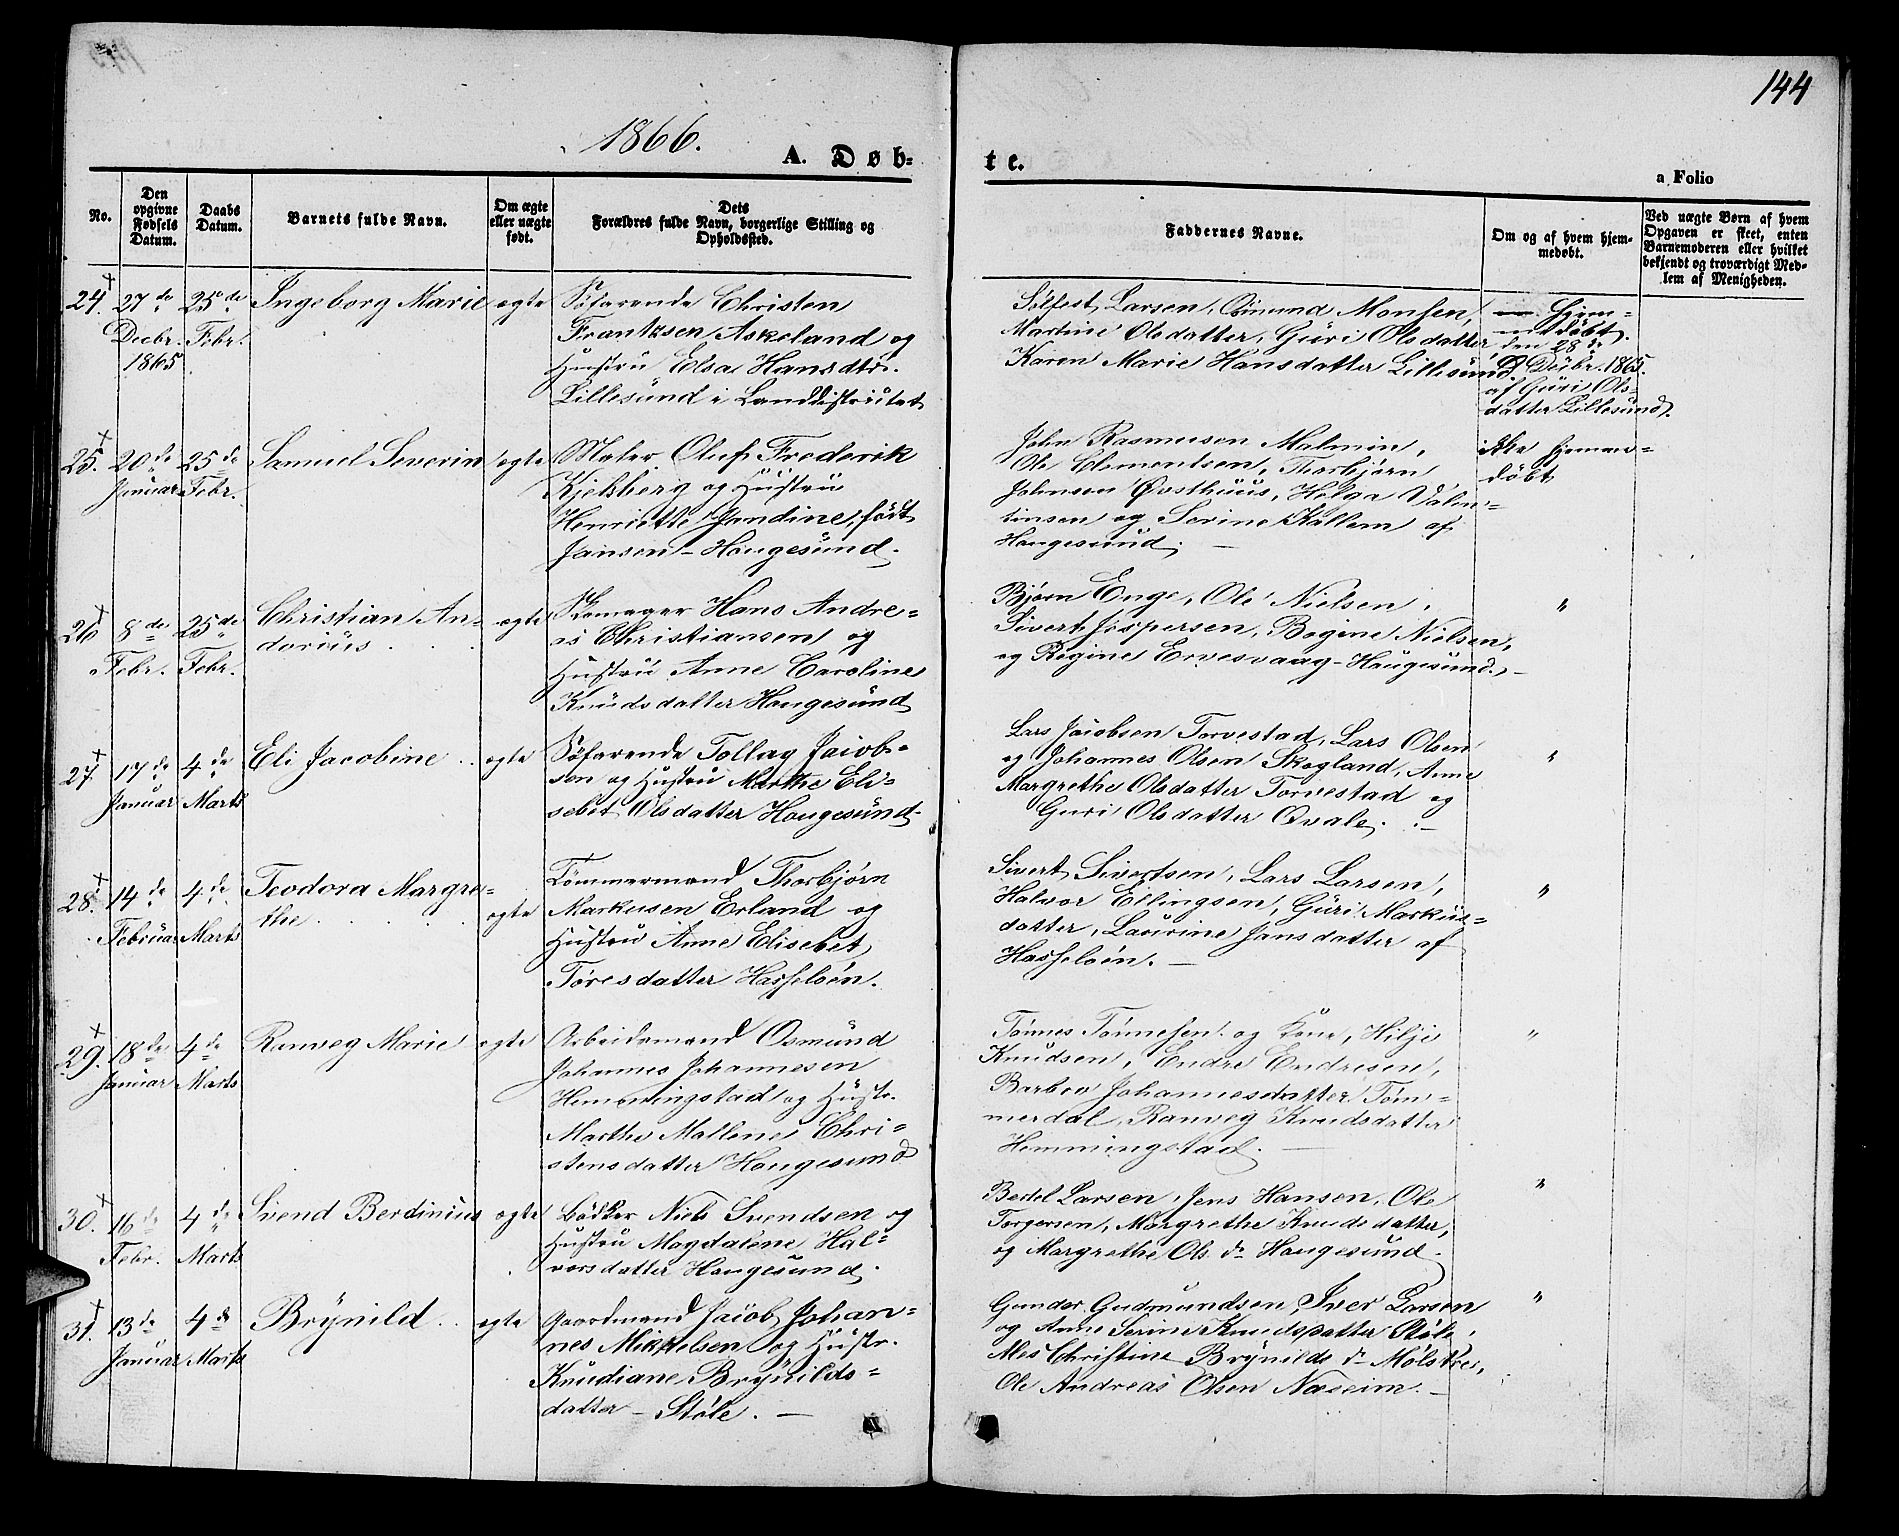 144
1866.
A. Døb-
te.
a Folio
No.
Den opgivne Fødsels Datum.
Daabs Datum.
Barnets fulde Navn.
Om ægte eller uægte født.
Dets Forældres fulde Navn, borgerlige Stilling og Opholdssted.
Faddernes Navne.
Om og af hvem hjemmedøbt.
Ved uægte Børn af hvem Opgaven er skeet, enten Barnemoderen eller hvilket bekjendt og troværdigt Medlem af Menigheden.
24. 27de Decbr. 1865 25de Febr. Ingeborg Marie ægte
Søfarende Christen
Frantksen Askeland og
Hustru Elsa Hansdtr.
Lillesund i Landdistriktet
Larsen, Osmund Monsen,
Martine Olsdatter, Guri Olsdatter,
Karen Marie Hansdatter Lillesund.
Hjem-
medøbt
den 28de
Decbr. 1865
af Guri Ols-
datter Lillesund.
25. 20de Januar 25de Febr. Samuel Severin ægte
Maler Oluf Frederik
Kjelsberg og Hustru
Henriette Jondine, født
Jansen - Haugesund.
John Rasmusen Malmin,
Ole Clementsen, Thorbjørn
Johnson Østhuus, Helga Valen-
tinsen og Serine Kallem af
Haugesund. —
ikke hjemme-
døbt
26 8de Febr. 25de Febr. Christian An-
dorius ægte
Skomager Hans Andre-
as Christiansen og
Hustru Anne Caroline
Knudsdatter Haugesund
Bjørn Enge, Ole Nielsen,
Sivert Jespersen, Bogine Nielsen,
og Regine Ervesvaag - Haugesund. —
"
27. 17de Januar 4de Marts Eli Jacobine ægte
Søfarende Tollag Jacob-
sen og Hustru Marthe Eli-
sebet Olsdatter Haugesund.
Lars Jacobsen Torvestad, Lars Olsen
og Johannes Olsen Skogland, Anne
Margrethe Olsdatter Torvestad og
Guri Olsdatter Qvale. —
"
28. 14de Februar 4de Marts Teodora Margre-
the ægte
Tømmermand Thorbjørn
Markusen Erland og
Hustru Anne Elisebet
Toresdatter Hasseløen.
Sivert Sivertsen, Lars Larsen,
Halvor Ellingsen, Guri Markus-
datter, Laurine Jansdatter af
Hasseløen. —
"
29. 18de Januar 4de Marts Ranveg Marie ægte
Arbeidsmand Osmund
Johannes Johannesen
Hemmingstad og Hustr.
Marthe Mallene Chri-
stensdatter Haugesund
Tønnes Tønnesen og Kone, Hilje
Knudsen, Endre Endresen,
Barbro Johannesdatter Tøm-
merdal, Ranveg Knudsdatter
Hemmingstad. —
"
30. 16de Febr. 4de Marts Svend Berdinius ægte
Bødker Niels Svendsen og
Hustru Magdalene Hal-
vorsdatter Haugesund.
Bertel Larsen, Jens Hansen, Ole
Torgersen, Margrethe Knudsdatter,
og Margrethe Ols. dr Haugesund.
"
31. 13de Januar 4de Marts Brynild ægte
Gaardmand Jacob Johan-
nes Mikkelsen og Hustr.
Knudiane Brynilds-
datter - Støle. —
Gunder Gudmundsen, Iver Larsen
og Anne Serine Knudsdatter Støle,
Christine Brynilds dr Mølstre,
Ole Andreas Olsen Næseim. —
"